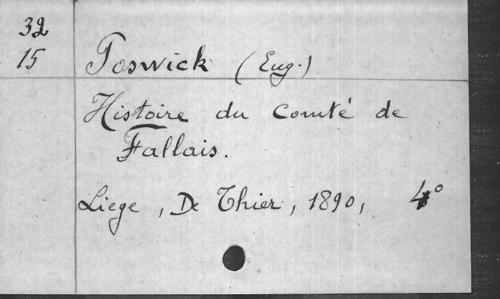 32
15 Poswick (Eug.)
Histoire du Comté de
Fallais.
Liege, De Thier, 1890, 4°